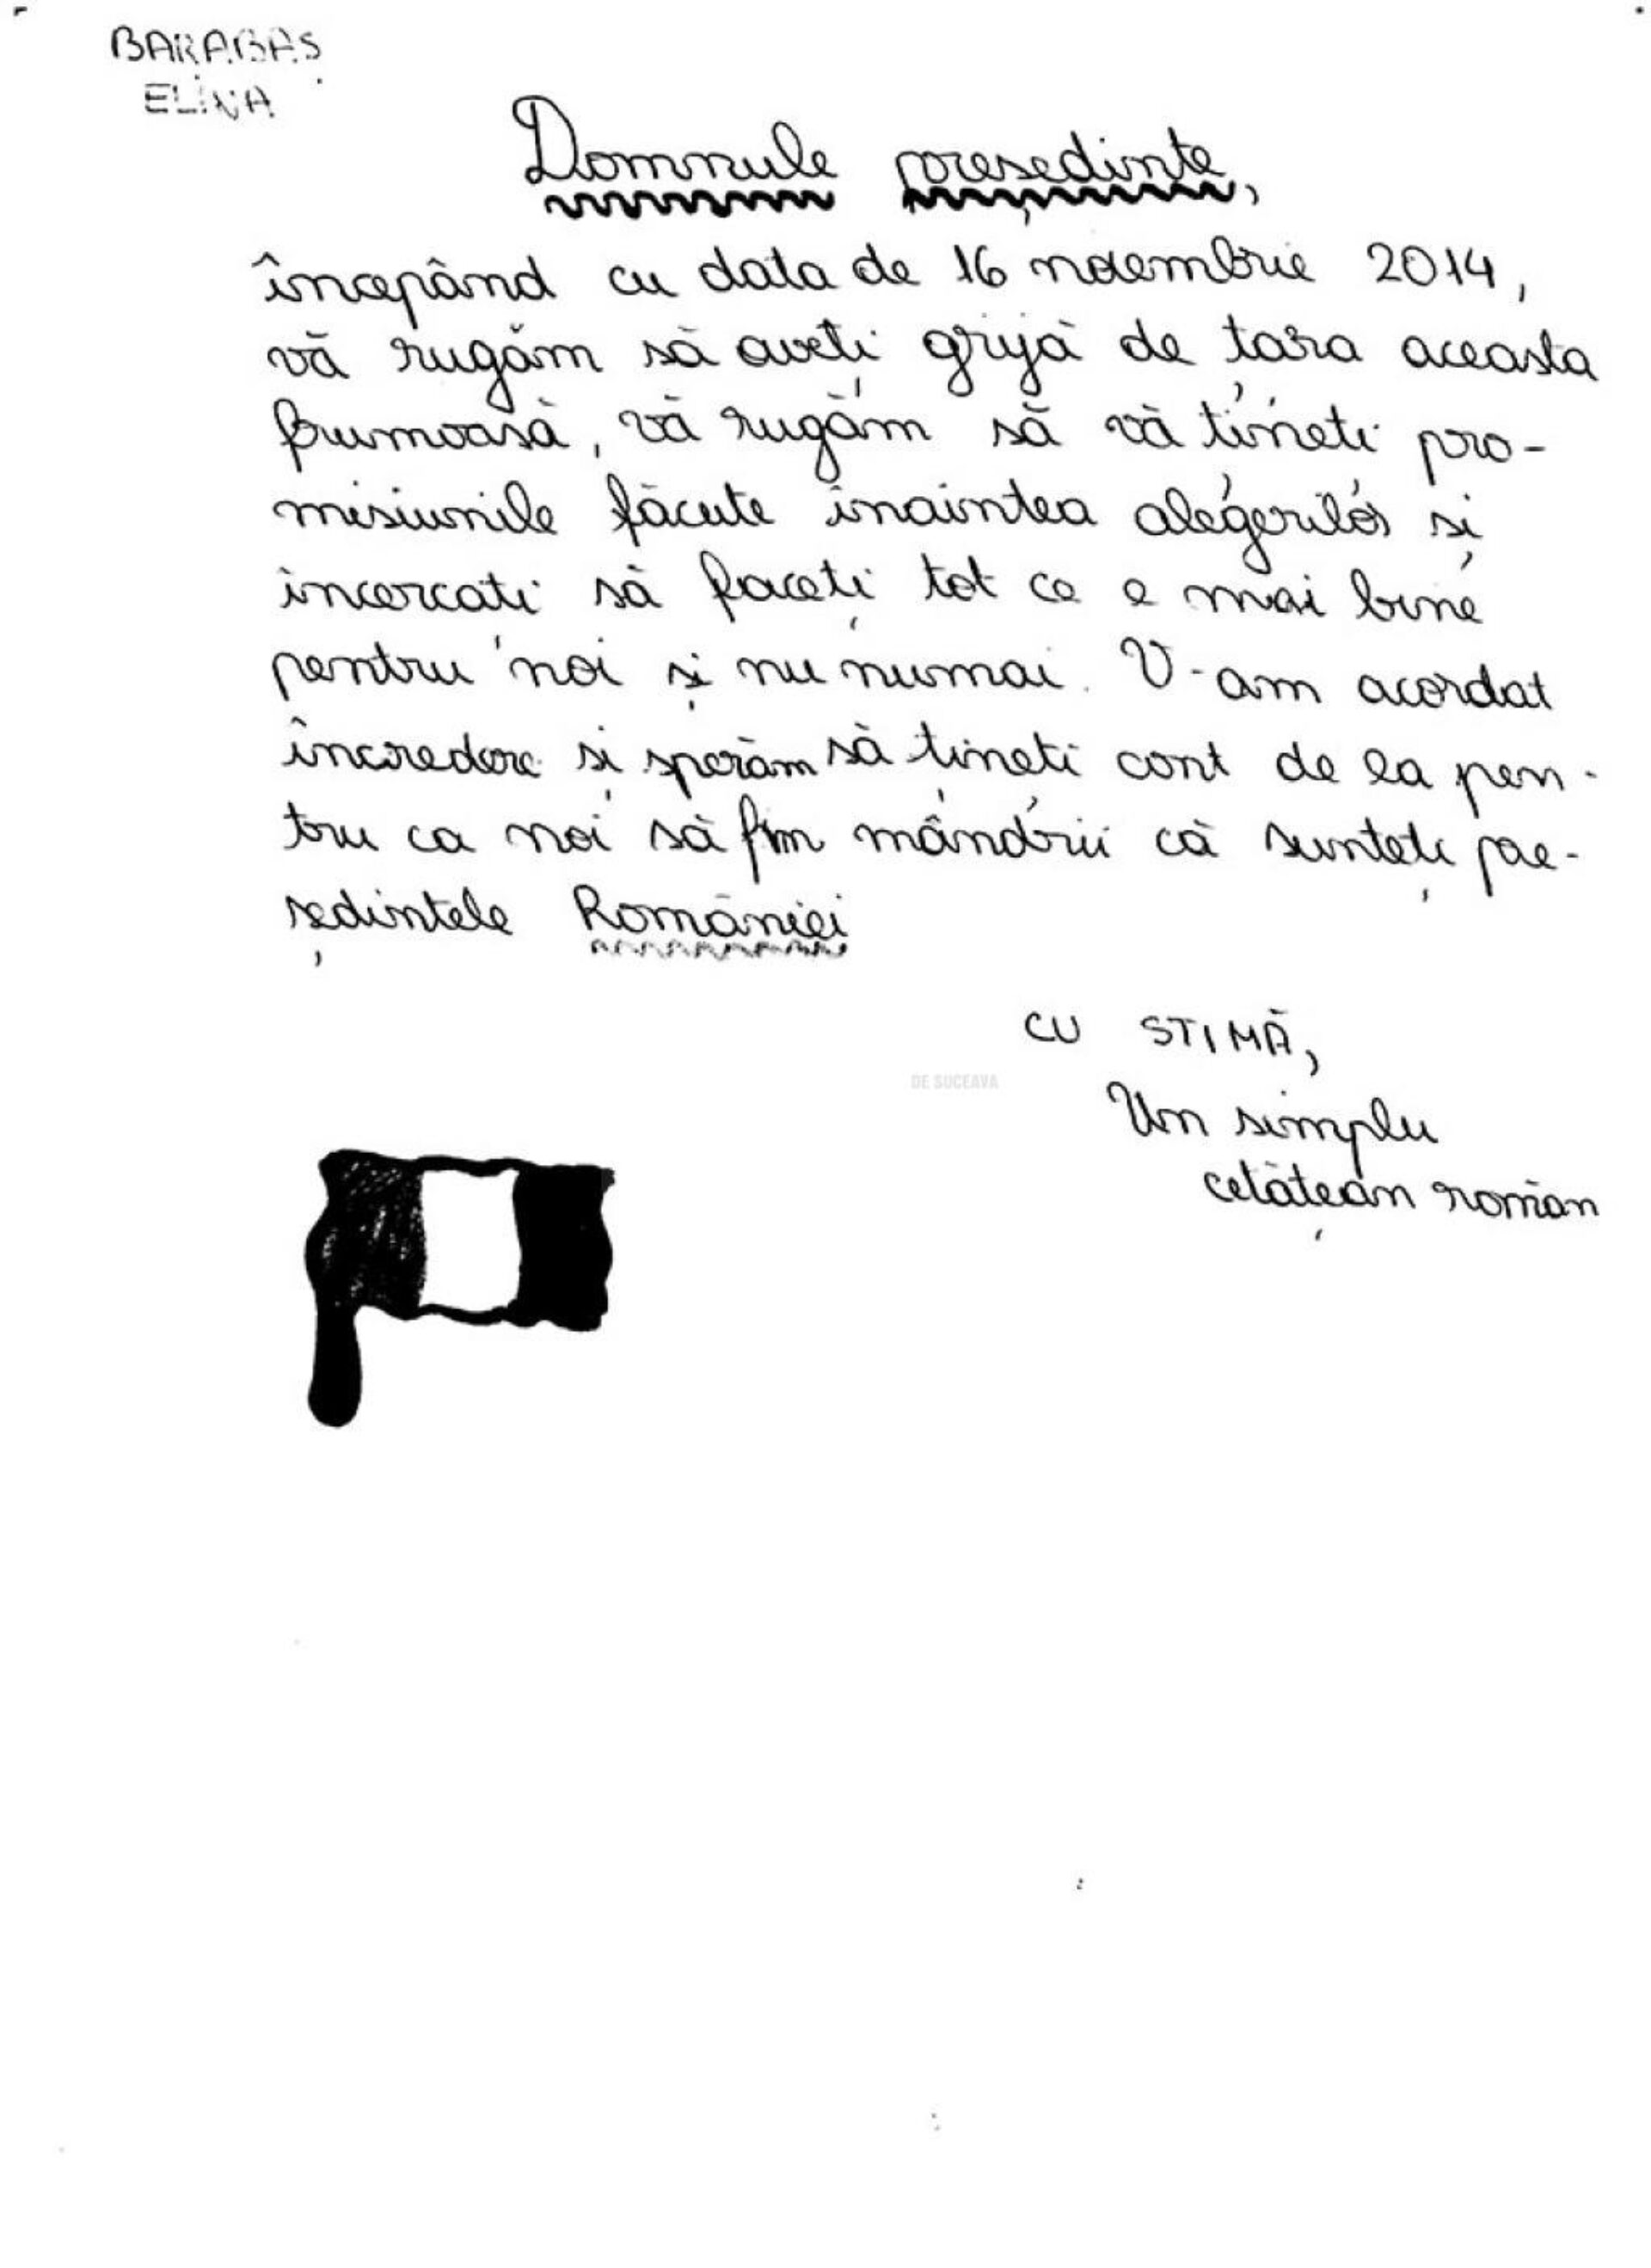 BARABAS
ELINA
Domnule președinte,
începând cu data de 16 noiembrie 2014,
vă rugăm să aveți grijă de țara aceasta
frumoasă, vă rugăm să vă țineți pro-
misiunile făcute înaintea alegerilor și
încercați să faceți tot ce e mai bine
pentru noi și nu numai. V-am acordat
încredere și sperăm să țineți cont de ea pen-
tru ca noi să fim mândrii că sunteți pre-
ședintele României
CU STIMĂ,
DE SUCEAVA
Un simplu
cetățean român